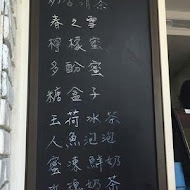 奶香清茶
春之雪
檸檬蜜
多酚蜜
糖盒子
玉荷冰茶
人魚泡泡
蜜凍鮮奶
玫瑰奶茶